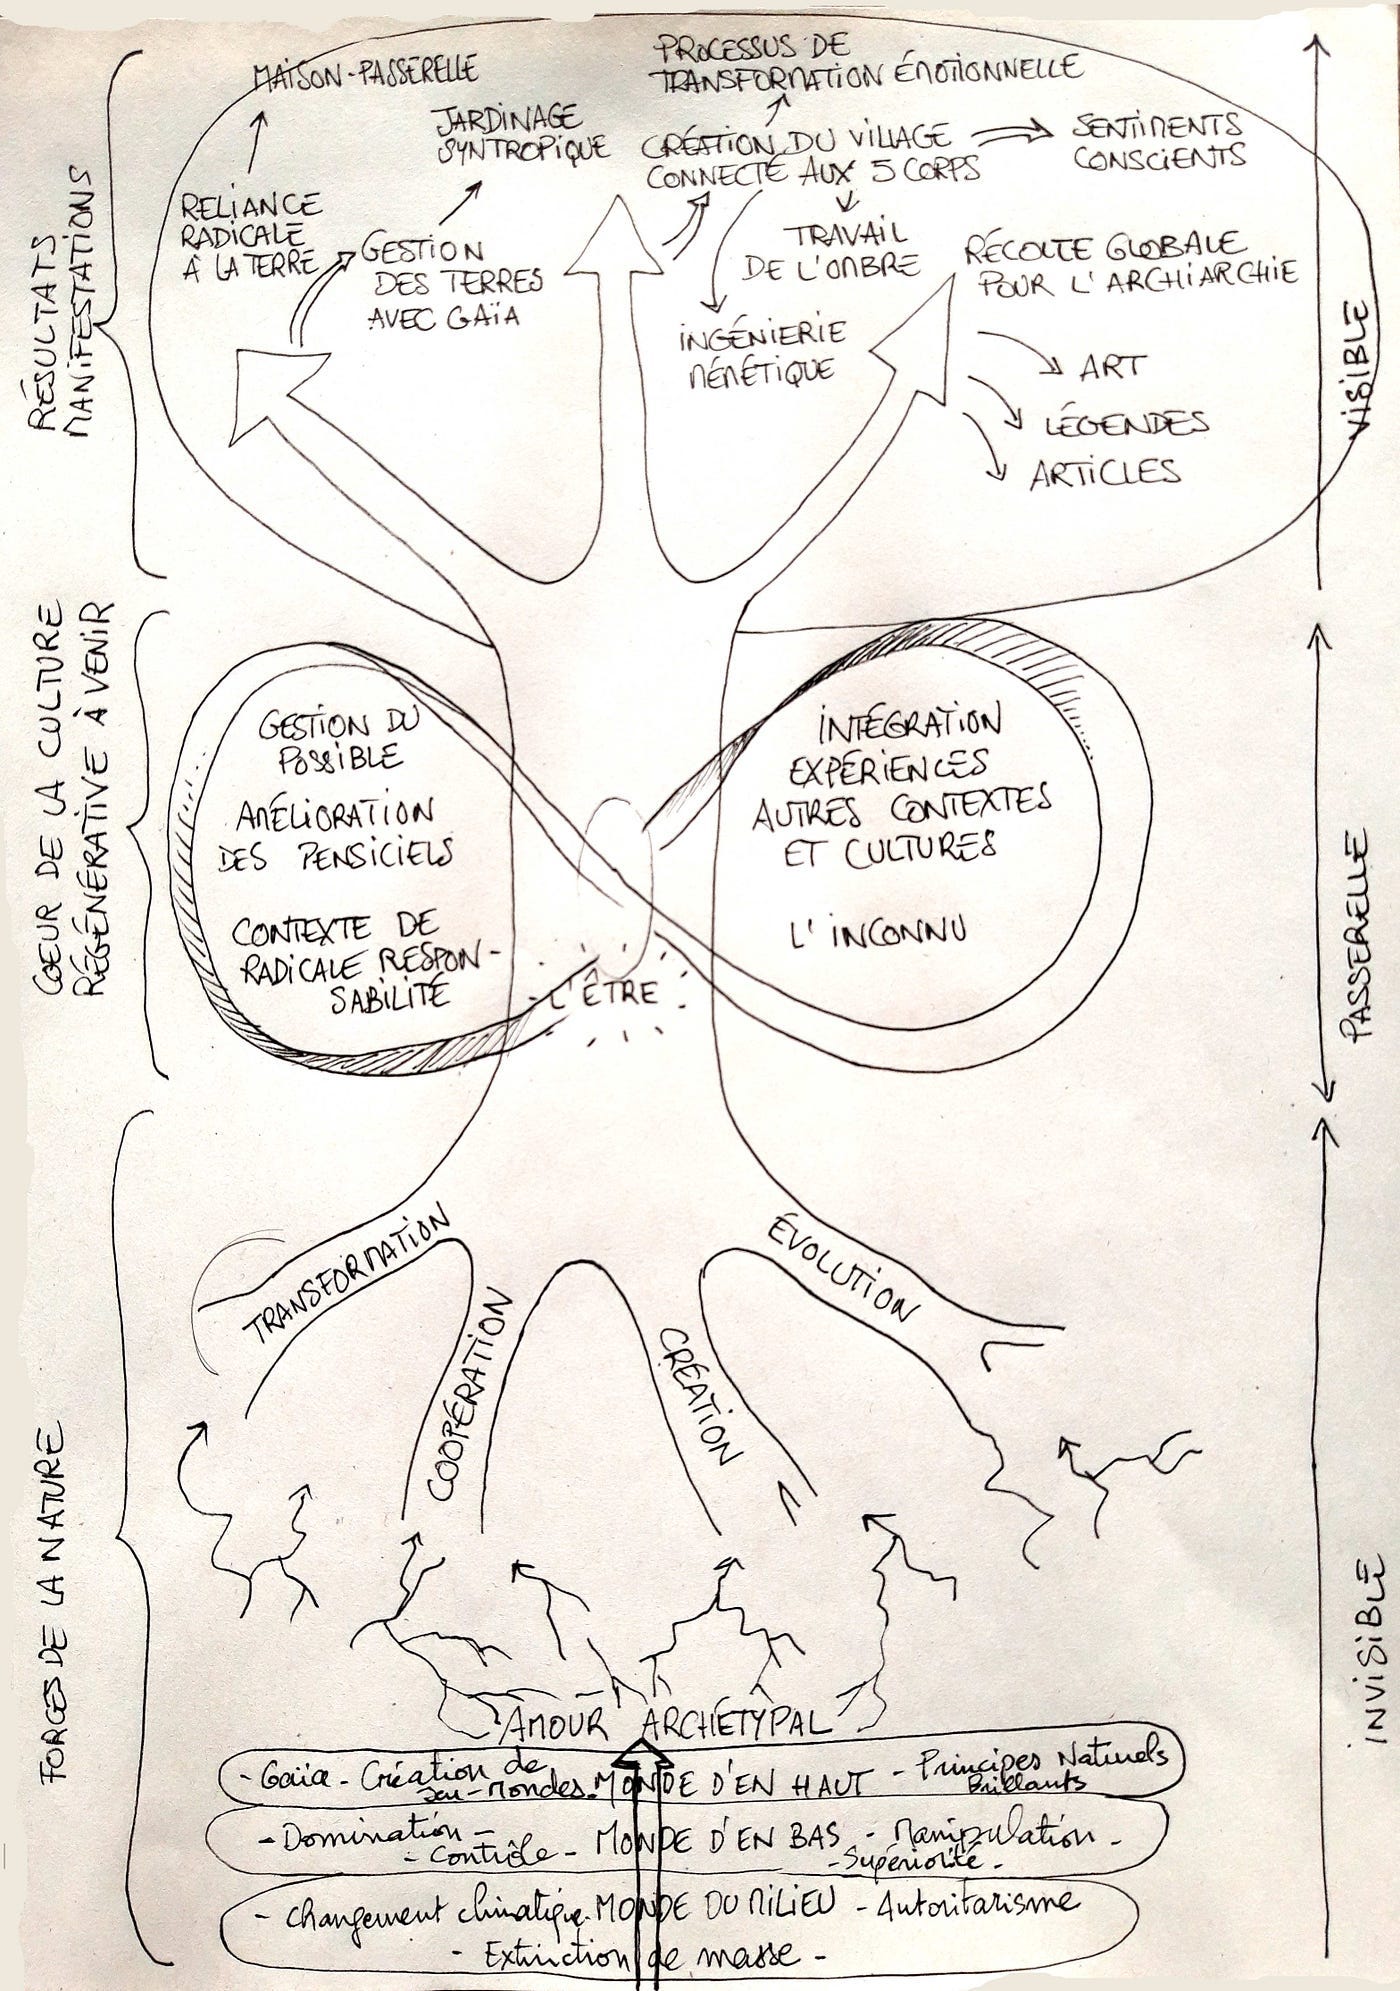 MAISON-PASSERELLE
PROCESSUS DE
TRANSFORMATION ÉMOTIONNELLE
JARDINAGE
SYNTROPIQUE
CRÉATION DU VILLAGE
CONNECTÉ AUX 5 CORPS
SENTIMENTS
CONSCIENTS
RELIANCE
RADICALE
À LA TERRE
GESTION
DES TERRES
AVEC GAÏA
TRAVAIL
DE L'OMBRE
RÉCOLTE GLOBALE
POUR L'ARCHIARCHIE
INGÉNIERIE
MÉMÉTIQUE
ART
LÉGENDES
ARTICLES
RÉSULTATS
MANIFESTATIONS
VISIBLE
COEUR DE LA CULTURE
RÉGÉNÉRATIVE À VENIR
GESTION DU
POSSIBLE
AMÉLIORATION
DES PENSICIELS
CONTEXTE DE
RADICALE RESPON-
SABILITÉ
INTÉGRATION
EXPÉRIENCES
AUTRES CONTEXTES
ET CULTURES
L'INCONNU
L'ÊTRE
PASSERELLE
TRANSFORMATION
COOPÉRATION
CRÉATION
ÉVOLUTION
FORGES DE LA NATURE
INVISIBLE
AMOUR ARCHÉTYPAL
- Gaïa - Création de
Jeu-Mondes. MONDE D'EN HAUT - Principes Naturels
Brillants
- Domination -
- Contrôle - MONDE D'EN BAS - Manipulation -
- Supériorité -
- Changement climatique. MONDE DU MILIEU - Autoritarisme
- Extinction de masse -